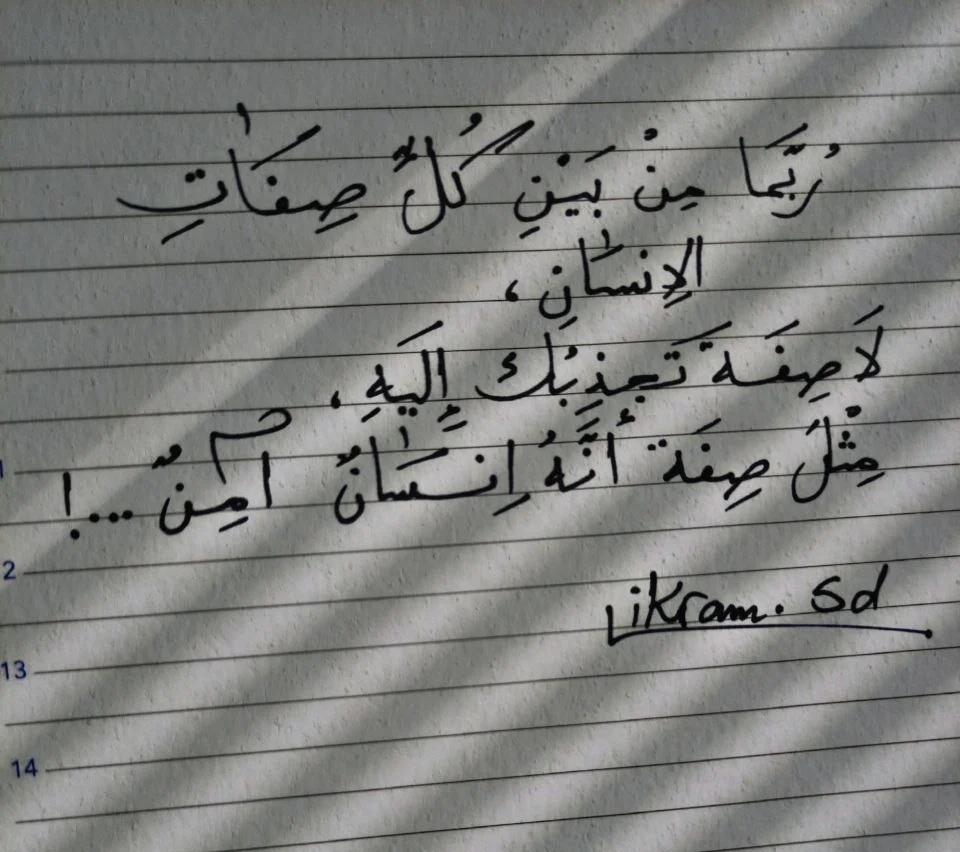 رُبَّمَا مِنْ بَيْنِ كُلِّ صِفَاتِ
الإِنسَانِ ،
لَا صِفَةَ تَجذِبُكَ إِلَيهِ ،
مِثْلَ صِفَة أَنَّهُ إِنسَانٌ آمِنٌ ...!
ikram. Sd
1
2
13
14